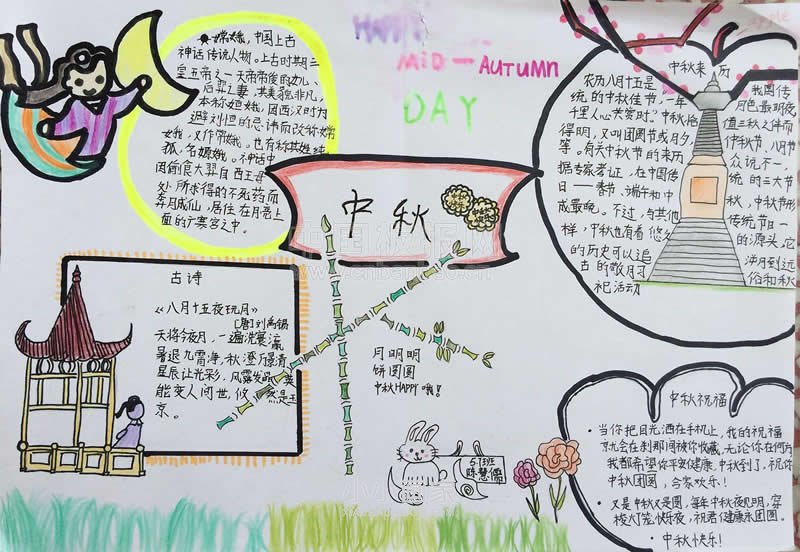 HAPPY
MID-AUTUMN
DAY
嫦娥，中国上古
神话传说人物。上古时期三
皇五帝之一天帝帝俊的女儿、
后羿之妻，其美貌非凡，
本称姮娥，因西汉时为
避刘恒的忌讳而改称嫦
娥，又作常娥。也有称其姓纯
狐，名嫄娥。神话中
因偷食大羿自西王母
处所求得的不死药而
奔月成仙，居住在月亮上
面的广寒宫之中。
中秋
古诗
《八月十五夜玩月》
[唐]刘禹锡
天将今夜月，一遍洗寰瀛
暑退九霄净，秋澄万景清
星辰让光彩，风露发晶英
能变人间世，攸然是玉
京。
月明明
饼圆圆
中秋HAPPY哦！
5.1班
中秋来历
农历八月十五是我国传
统的中秋佳节，一年月色最明夜，
千里人心共赏时。中秋恰值三秋之伴而
得明，又叫团圆节或月夕，仲秋节、八月节
等。有关中秋节的来历众说不一，
据专家考证，在中国传统的三大节
日——春节、端午和中秋，中秋节形
成最晚。不过，与其他传统节日一
样，中秋也有着悠久的源头，它
的历史可以追涉月到远
古的敬月习俗和秋
祀活动
中秋祝福
·当你把目光洒在手机上，我的祝福
就会在刹那间被你收藏，无论你在何方
我都希望你平安健康，中秋到了，祝你
中秋团圆，合家欢乐！
·又是中秋又是圆，每年中秋夜见明，穿
梭灯笼快乐夜，祝君健康永团圆。
·中秋快乐！